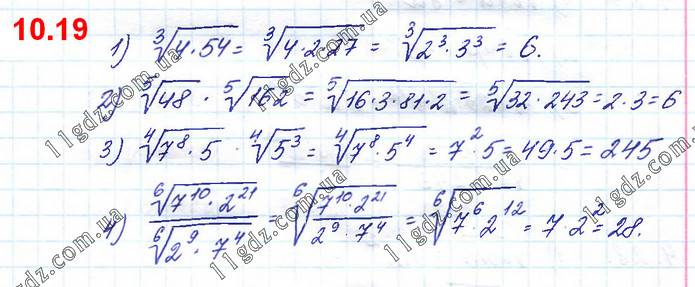 10.19
1) ∛(4·54) = ∛(4·2·27) = ∛(2³·3³) = 6.
2) ⁵√48 · ⁵√162 = ⁵√(16·3·81·2) = ⁵√(32·243) = 2·3 = 6
3) ⁴√(7⁸·5) · ⁴√(5³) = ⁴√(7⁸·5⁴) = 7²·5 = 49·5 = 245
4) ⁶√(7¹⁰·2²¹) / ⁶√(2⁹·7⁴) = ⁶√((7¹⁰·2²¹)/(2⁹·7⁴)) = ⁶√(7⁶·2¹²) = 7·2² = 28.
11gdz.com.ua
11gdz.com.ua
11gdz.com.ua
11gdz.com.ua